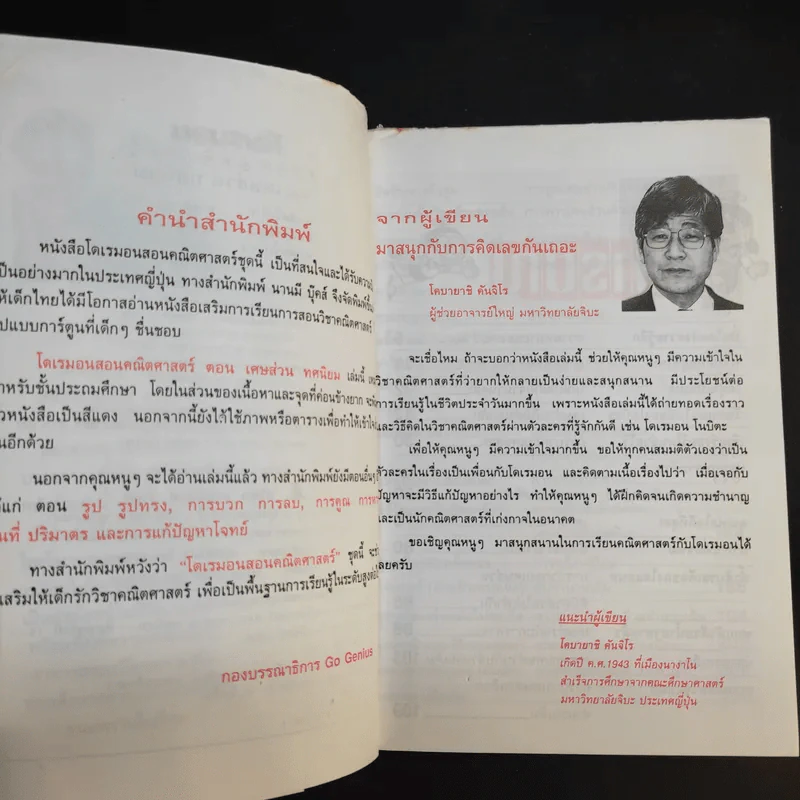 คำนำสำนักพิมพ์
หนังสือโดเรมอนสอนคณิตศาสตร์ชุดนี้ เป็นที่สนใจและได้รับความ
ป็นอย่างมากในประเทศญี่ปุ่น ทางสำนักพิมพ์ นานมี บุ๊คส์ จึงจัดพิมพ์ขึ้น
ห้เด็กไทยได้มีโอกาสอ่านหนังสือเสริมการเรียนการสอนวิชาคณิตศาสตร์
ปแบบการ์ตูนที่เด็กๆ ชื่นชอบ
โดเรมอนสอนคณิตศาสตร์ ตอน เศษส่วน ทศนิยม เล่มนี้
ำหรับชั้นประถมศึกษา โดยในส่วนของเนื้อหาและจุดที่ค่อนข้างยาก จะ
ัวหนังสือเป็นสีแดง นอกจากนี้ยังได้ใช้ภาพหรือตารางเพื่อทำให้เข้าใจ
นอีกด้วย
นอกจากคุณหนูๆ จะได้อ่านเล่มนี้แล้ว ทางสำนักพิมพ์ยังมีตอนอื่นๆ
ด้แก่ ตอน รูป รูปทรง, การบวก การลบ, การคูณ การหาร
นที่ ปริมาตร และการแก้ปัญหาโจทย์
ทางสำนักพิมพ์หวังว่า "โดเรมอนสอนคณิตศาสตร์" ชุดนี้ จะช่
เสริมให้เด็กรักวิชาคณิตศาสตร์ เพื่อเป็นพื้นฐานการเรียนรู้ในระดับสูงต่อไ
กองบรรณาธิการ Go Genius
จากผู้เขียน
มาสนุกกับการคิดเลขกันเถอะ
โคบายาชิ คันจิโร
ผู้ช่วยอาจารย์ใหญ่ มหาวิทยาลัยจิบะ
จะเชื่อไหม ถ้าจะบอกว่าหนังสือเล่มนี้ ช่วยให้คุณหนูๆ มีความเข้าใจใน
วิชาคณิตศาสตร์ที่ว่ายากให้กลายเป็นง่ายและสนุกสนาน มีประโยชน์ต่อ
การเรียนรู้ในชีวิตประจำวันมากขึ้น เพราะหนังสือเล่มนี้ได้ถ่ายทอดเรื่องราว
และวิธีคิดในวิชาคณิตศาสตร์ผ่านตัวละครที่รู้จักกันดี เช่น โดเรมอน โนบิตะ
เพื่อให้คุณหนูๆ มีความเข้าใจมากขึ้น ขอให้ทุกคนสมมติตัวเองว่าเป็น
ตัวละครในเรื่องเป็นเพื่อนกับโดเรมอน และคิดตามเนื้อเรื่องไปว่า เมื่อเจอกับ
ปัญหาจะมีวิธีแก้ปัญหาอย่างไร ทำให้คุณหนูๆ ได้ฝึกคิดจนเกิดความชำนาญ
และเป็นนักคณิตศาสตร์ที่เก่งกาจในอนาคต
ขอเชิญคุณหนูๆ มาสนุกสนานในการเรียนคณิตศาสตร์กับโดเรมอนได้
เลยครับ
แนะนำผู้เขียน
โคบายาชิ คันจิโร
เกิดปี ค.ศ.1943 ที่เมืองนางาโน
สำเร็จการศึกษาจากคณะศึกษาศาสตร์
มหาวิทยาลัยจิบะ ประเทศญี่ปุ่น